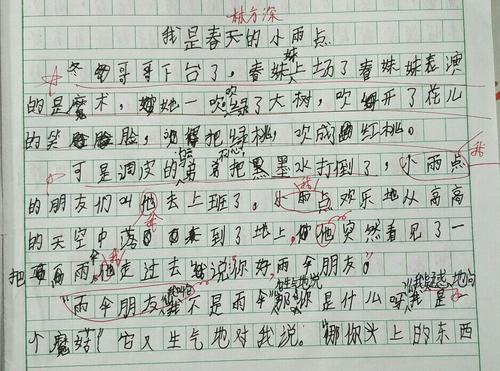 林方深
我是春天的小雨点
冬哥哥下台了,春妹妹上场了春妹妹表演
的是魔术,她一吹绿了大树,吹开了花儿
的笑脸,把绿桃,吹成红桃。
可是调皮的弟弟把黑墨水打倒了,小雨点 我
的朋友们叫他去上班了,小雨点欢乐地从高高
的天空中落 来到了地上,他突然看见了一
把雨伞走过去说“你好,雨伞朋友。”
“雨伞朋友我不是雨伞”那你是什么呀我疑惑地问我是一
个魔菇”它又生气地对我说。“那你头上的东西